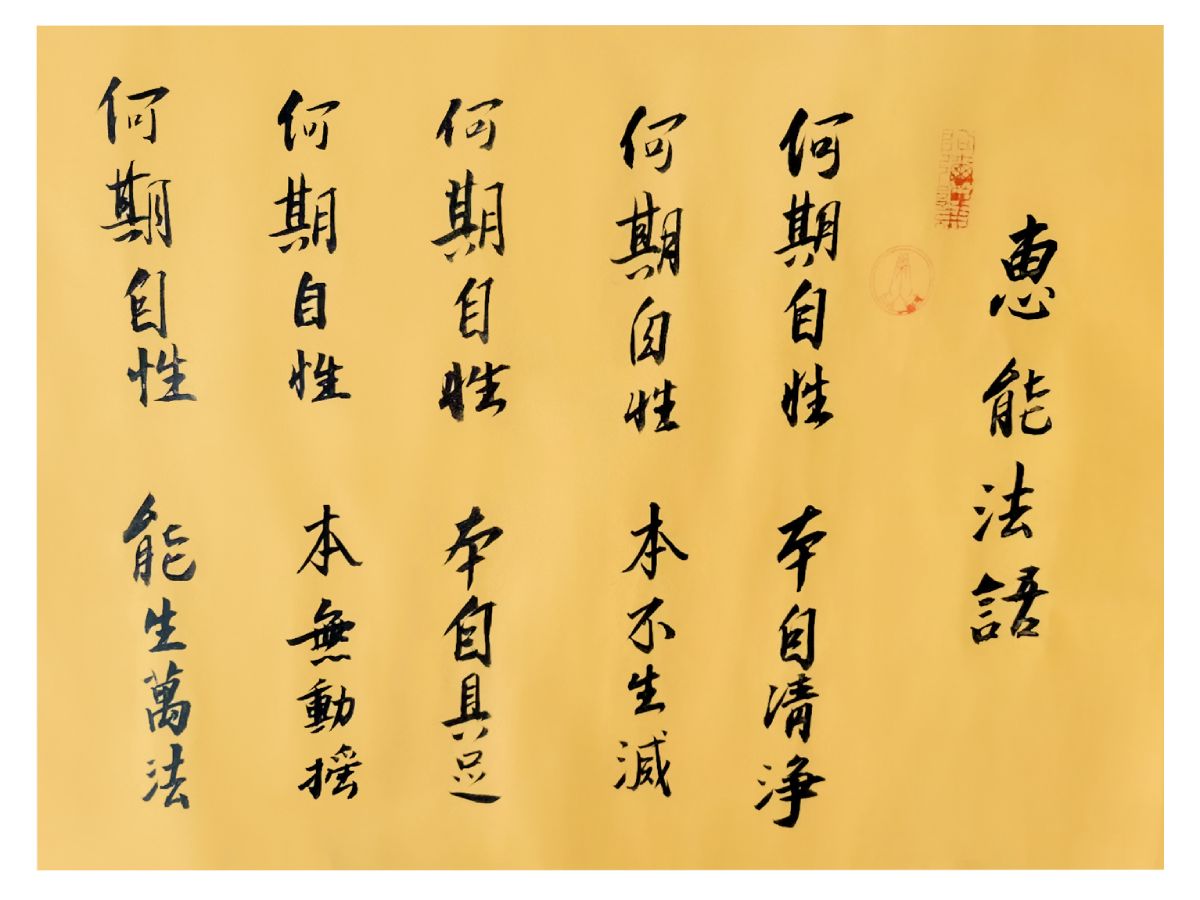 惠能法語
何期自性 本自清浄
何期自性 本不生滅
何期自性 本自具足
何期自性 本無動摇
何期自性 能生萬法